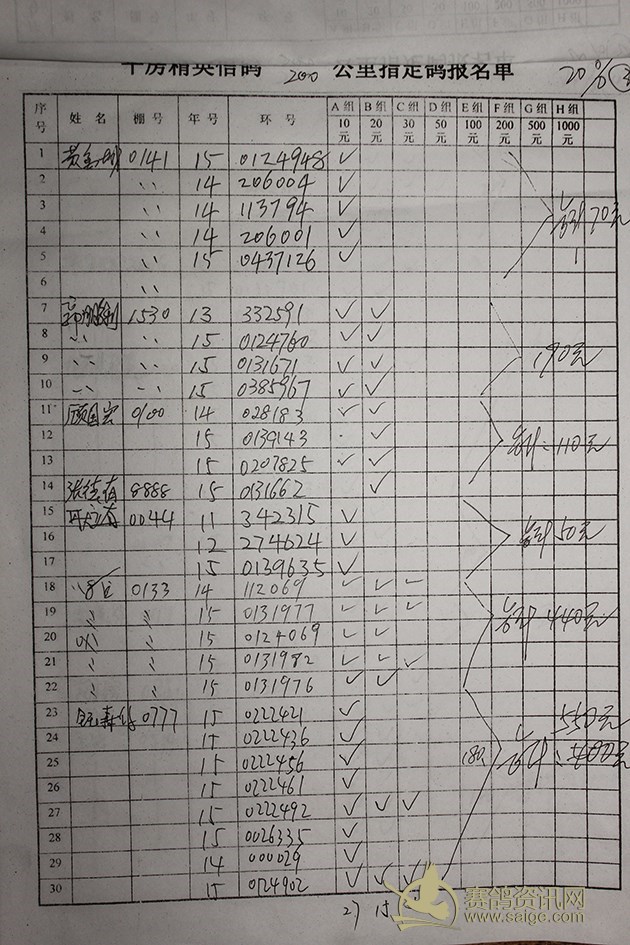 千房精英信鸽 200 公里指定鸽报名单 20%
序号 姓名 棚号 年号 环号 A组10元 B组20元 C组30元 D组50元 E组100元 F组200元 G组500元 H组1000元
1 0141 15 0124948 ✓
2 〃 14 206004 ✓
3 〃 14 113794 ✓
4 〃 14 206001 ✓ 70元
5 〃 15 0437126 ✓
6 〃
7 1530 13 332591 ✓ ✓
8 〃 〃 15 0124760 ✓ ✓
9 〃 〃 15 0131671 ✓ ✓ 190元
10 〃 〃 15 0385967 ✓ ✓
11 顾国宏 0100 14 028183 ✓ ✓
12 15 0139143 ✓ 110元
13 15 0207825 ✓ ✓
14 8888 15 0131662 ✓
15 0044 11 342315 ✓
16 12 274624 ✓ 50元
17 15 0139635 ✓
18 0133 14 112069 ✓ ✓ ✓
19 〃 〃 15 0131977 ✓ ✓ ✓
20 〃 15 0124069 ✓ ✓ 440元
21 〃 〃 15 0131982 ✓ ✓ ✓
22 〃 〃 15 0131976 ✓ ✓
23 0777 15 0222421 ✓ 550元
24 15 0222436 ✓
25 15 0222456 ✓ 180
26 15 0222461 ✓
27 15 0222492 ✓ ✓ ✓
28 15 0026335 ✓
29 14 000029 ✓
30 15 0124902 ✓ ✓ ✓
27 15
赛鸽资讯网
www.saige.com